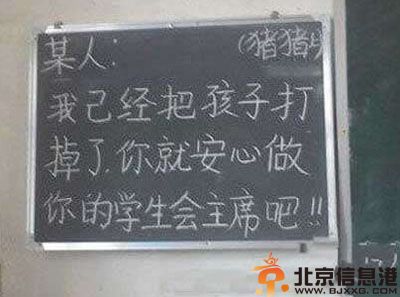 某人：
(猪猪
我已经把孩子打
掉了.你就安心做
你的学生会主席吧!!
北京信息港
WWW.BJXXG.COM